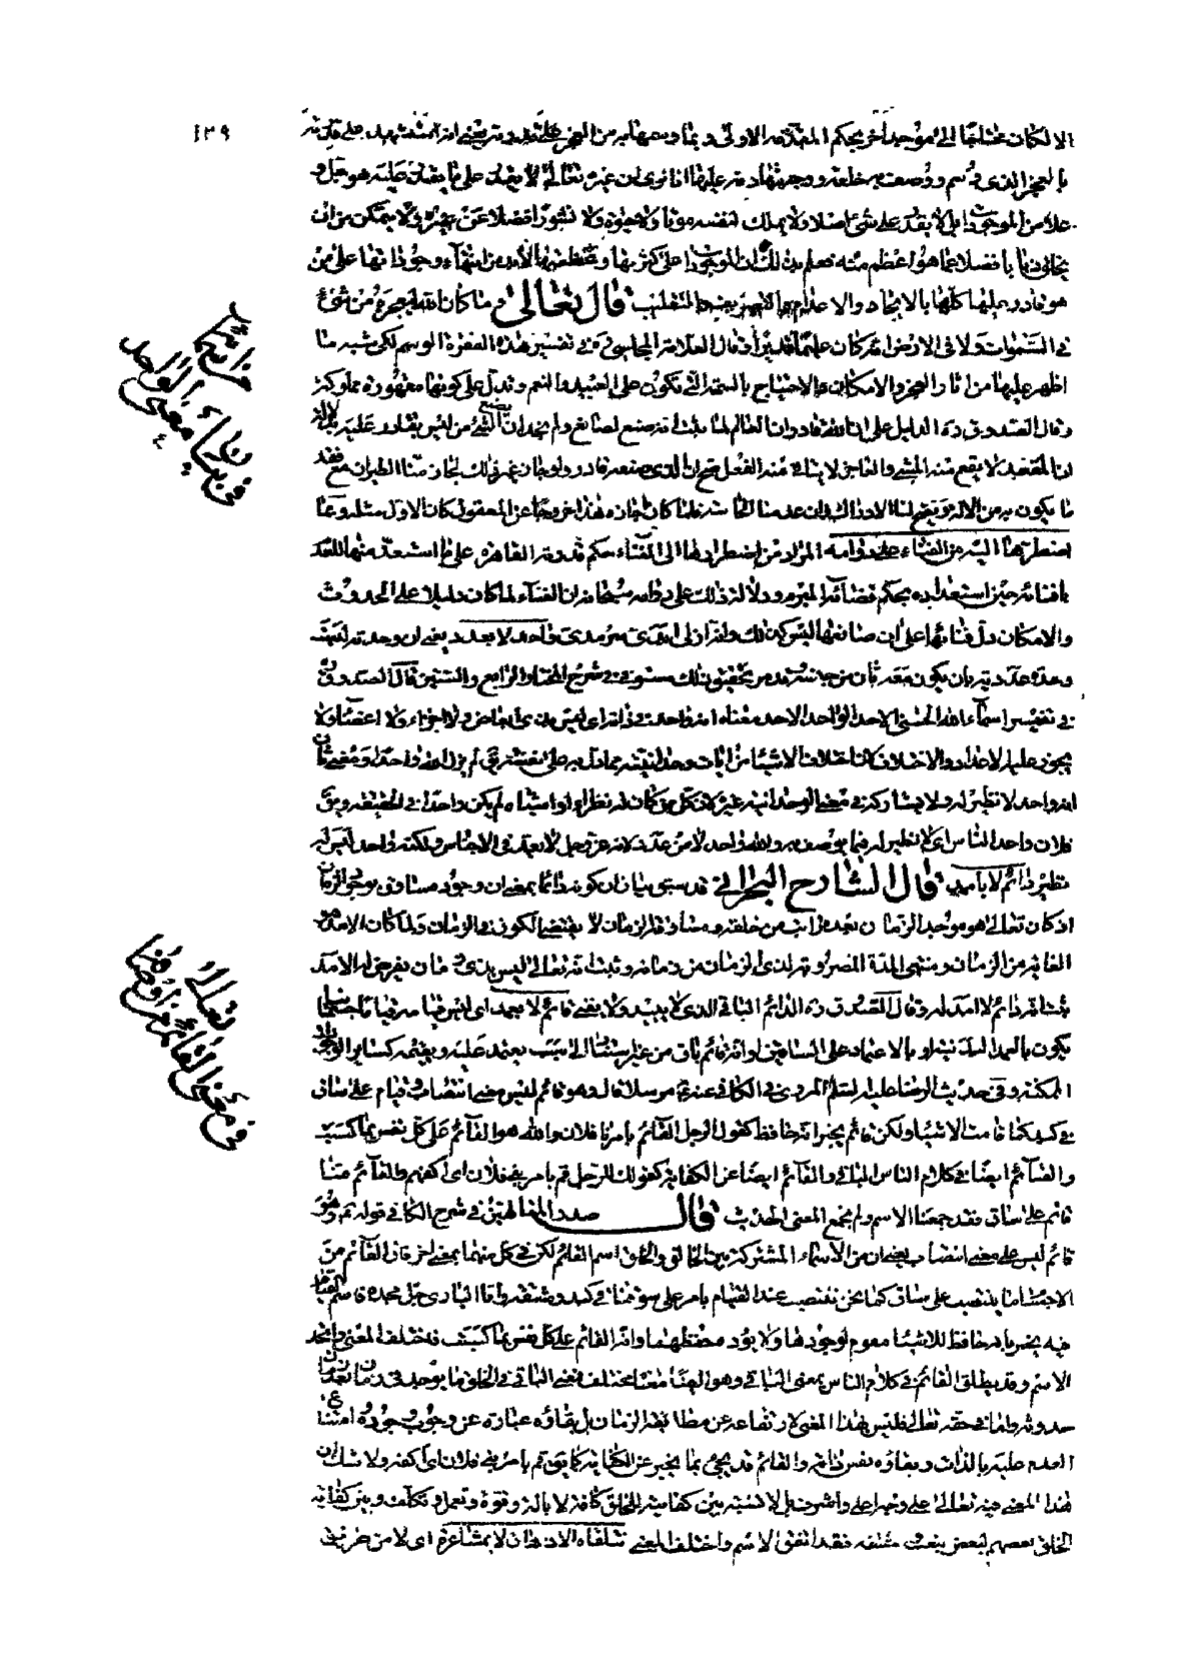 ١٣٩
الا لكان محتاجا الى موجد آخر بحكم المقدمة الاولى وبما وسمها به من العجز على قدرته
بالعجز الذى وسم ووصف به خلقه ووجه شهادته عليها انا نرى ان غيره تعالى لا يقدر على ما يقدر عليه هو جل و
علا من الموجودات بل لا يقدر على شىء اصلا ولا يملك لنفسه موتا ولا حيوة ولا نشورا فضلا عن غيره ولا يتمكن من ان
يخلق ذبابا فضلا عما هو اعظم منه فعلم بذلك ان الموجودات على كثرتها وعظمها لابد من انتهاء وجود اتها على من
هو قادر عليها كلها بالايجاد والاعدام قال تعالى وما كان الله ليعجزه من شىء
فى السموات ولا فى الارض انه كان عليما قديرا وقال العلامة المجلسى ره فى تفسير هذه الفقرة الوسم الكى شبه ما
اظهر عليها من اثار العجز والامكان والاحتياج بالسمة التى تكون على العبيد والنعم وتدل على كونها مقهورة مملوكة
وقال الصدوق ره الدليل على ان الله قادر ان العالم لما ثبت انه صنع لصانع ولم نجد ان يصنع الشىء من ليس بقادر عليه بدلالة
ان المقعد لا يقع منه المشى والعاجز لا يتأتى منه الفعل صح ان الذى صنعه قادر ولو جاز غير ذلك لجاز منا الطيران مع فقد
ما يكون به من الالة ويصح لنا الادراك وان عدمنا الحاسة فلما كان اجازة هذا خروجا عن المعقول كان الاول مثله وبما
اضطرها اليه من الفناء على دوامه المراد من اضطرارها الى الفناء حكم قدرته القاهرة على ما استعد منها للعدم
بافنائه حين استعداده بحكم قضائه المبرم ودلالة ذلك على دوامه سبحانه ان الفناء لما كان دليلا على الحدوث
والامكان دل فنائها على ان صانعها ليس كذلك وانه ازلى ابدى سرمدى واحد لا بعدد يعنى ان وحدته ليست
وحدة عددية بان يكون معه ثان من جنسه تحقيق ذلك مستوفى فى شرح المختار الرابع والستين قال الصدوق
فى تفسير اسماء الله الحسنى الاحد الواحد الاحد معناه انه واحد فى ذاته اى ليس بذى ابعاض ولا اجزاء ولا اعضاء ولا
يجوز عليه الاعداد والاختلاف لان اختلاف الاشياء من ايات وحدانيته مما دل به على نفسه ويق لم يزل الله واحدا ومعنى ثان
انه واحد لا نظير له ولا يشاركه فى معنى الوحدانية غيره لان كل من كان له نظراء او اشباه لم يكن واحدا فى الحقيقة ويق
فلان واحد الناس اى لا نظير له فيما يوصف به والله واحد لا من عدد لانه عز وجل لا يعد فى الاجناس ولكنه واحد ليس له
نظير دائم لا بامد قال الشارح البحرانى قد سبق بيان ان كونه دائما بمعنى ان وجوده مساوق لوجود الزمان
اذ كان تعالى هو موجد الزمان بعد مراتب من خلقه ومساوقة الزمان لا يقتضى الكون فى الزمان ولما كان الامد هو
الغاية من الزمان ومنتهى المدة المضروبة لذى الزمان من زمانه وثبت انه تعالى ليس بذى زمان يفرض له الامد
ثبت انه دائم لا امد له وقال الصدوق ره الدائم الباقى الذى لا يبيد ولا يفنى قائم لا بعمد اى ليس قيامه قياما جسمانيا
يكون بالعمد البدنية او بالاعتماد على الساقين او انه قائم باق من غير استناد الى سبب يعتمد عليه ويقيمه كسائر الموجودات
الممكنة وفى حديث الرضا عليه السلم المروى فى الكافى عنه مرسلا قال وهو قائم ليس معنى انتصاب وقيام على ساق
فى كبد كما قامت الاشياء ولكن قائم يخبر انه حافظ كقول الرجل القائم بامرنا فلان والله هو القائم على كل نفس بما كسبت
والقائم ايضا فى كلام الناس الباقى والقائم ايضا عن الكفاية كقولك للرجل قم بامر بنى فلان اى اكفهم والقائم منا
قائم على ساق فقد جمعنا الاسم ولم يجمع المعنى الحديث قال صدر المتالهين فى شرح الكافى قوله وهو
قائم ليس على معنى انتصاب يعنى ان من الاسماء المشتركة بين الخالق والخلق اسم القائم لكن فى كل منهما بمعنى اخر فان القائم من
الاجسام ما ينتصب على ساق كما نحن ننتصب عند القيام بامر على سوقنا فى كبد ومشقة واما البارى جل مجده فاسم القائم
فيه يخبر بانه حافظ للاشياء مقوم لوجودها ولا يؤد حفظهما وانه القائم على كل نفس بما كسبت فاختلف المعنى واتحد
الاسم وقد يطلق القائم فى كلام الناس بمعنى الباقى وهو ايضا معنا مختلف فمعنى الباقى فى الخلق ما يوجد فى زمان بعد زمان
حدوثه واما فى حقه تعالى فليس بهذا المعنى لارتفاعه عن مطابقة الزمان بل بقاؤه عبارة عن وجوب وجوده وامتناع
العدم عليه بالذات وبقاؤه نفس ذاته والقائم قد يجئ بما يخبر عن الكفاية كما يق قم بامر بنى فلان اى اكفه ولا شك ان
هذا المعنى فيه تعالى على وجه اعلى واشرف بل لا نسبة بين كفايته الخلق كافة لا بالة وقوة وتعمل وتكلف وبين كفاية
الخلق بعضهم لبعض بتعب مشقة فقد اتفق الاسم واختلف المعنى تتلقاه الاذهان لا بمشاعرة اى لا من طريق
فى بيان معنى الواحد
فى معنى القائم من اوصافه تعالى